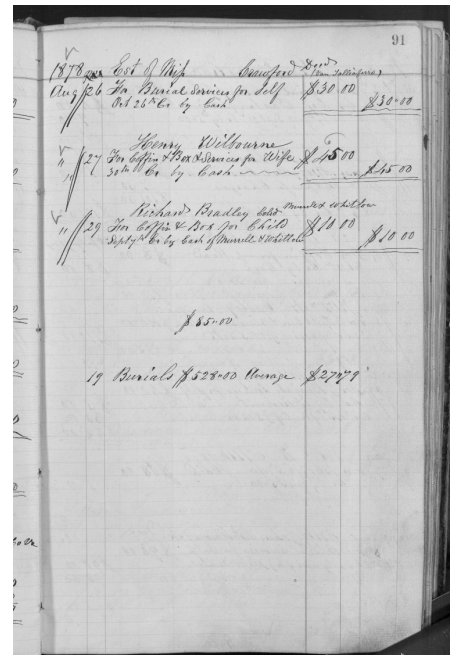 91
1878 Est of Miss Crawford Decd
Aug 26 For Burial Services for Self $30 00
Oct 26th Cr by Cash $30"00
Henry Wilbourne
" 27 For Coffin & Box & Services for Wife $45 00
" 30th Cr by Cash $45 00
Richard Bradley Cold Murrell & Whitlow
" 29 For Coffin & Box for Child $10 00
Sept Cr by Cash of Murrell & Whitlow $10 00
$85"00
19 Burials $528"00 Average $27"79